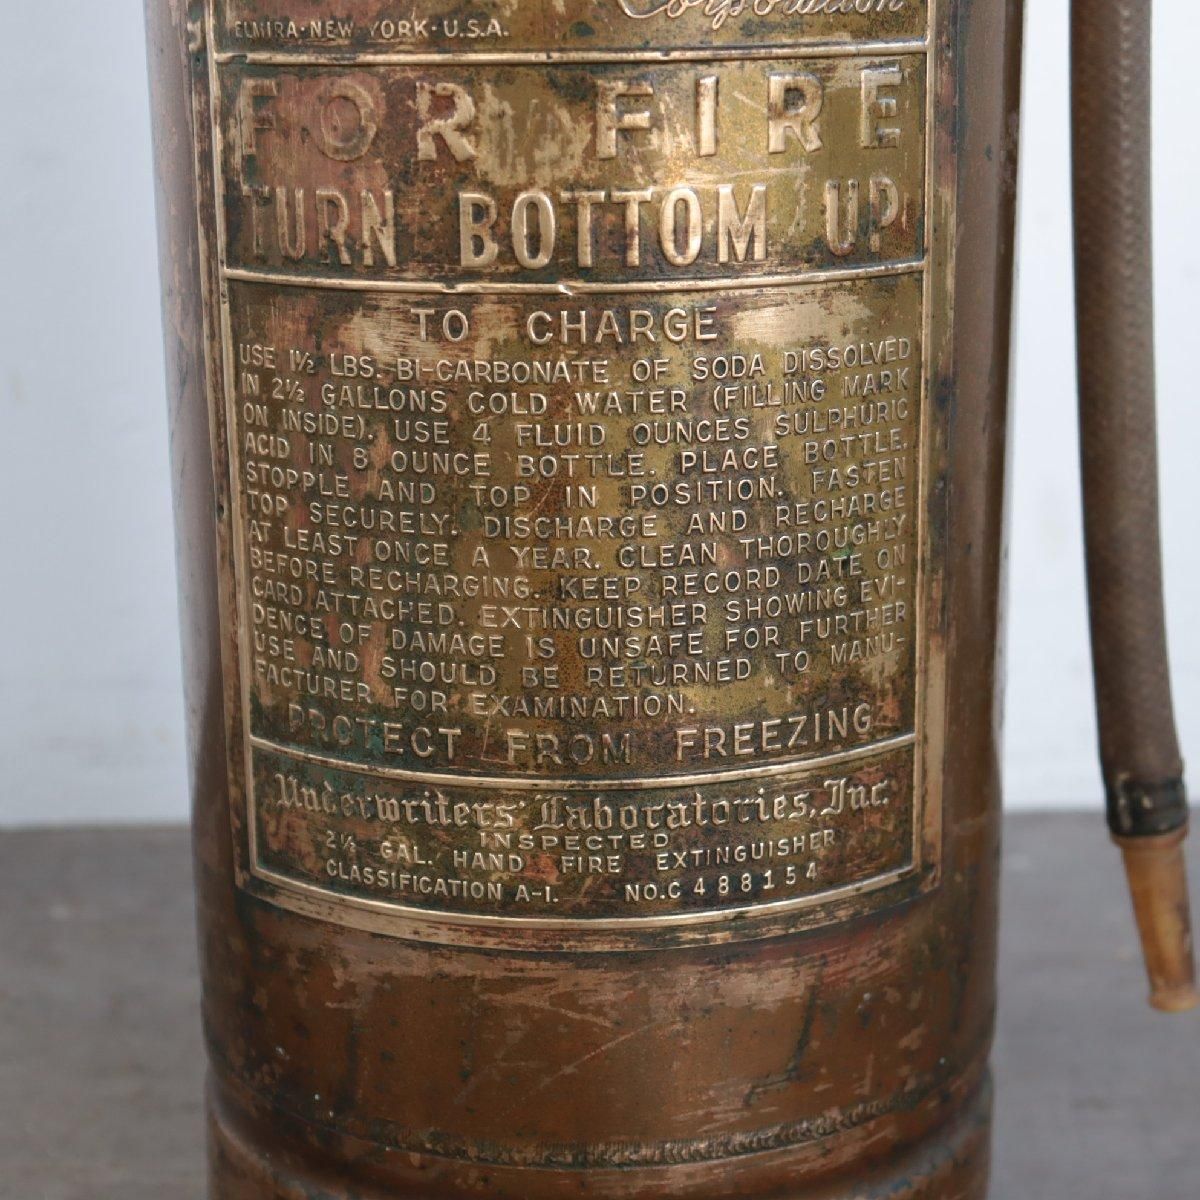 Corporation
ELMIRA · NEW YORK · U.S.A.
FOR FIRE
TURN BOTTOM UP
TO CHARGE
USE 1½ LBS. BI-CARBONATE OF SODA DISSOLVED
IN 2½ GALLONS COLD WATER (FILLING MARK
ON INSIDE). USE 4 FLUID OUNCES SULPHURIC
ACID IN 8 OUNCE BOTTLE. PLACE BOTTLE,
STOPPLE AND TOP IN POSITION. FASTEN
TOP SECURELY. DISCHARGE AND RECHARGE
AT LEAST ONCE A YEAR. CLEAN THOROUGHLY
BEFORE RECHARGING. KEEP RECORD DATE ON
CARD ATTACHED. EXTINGUISHER SHOWING EVI-
DENCE OF DAMAGE IS UNSAFE FOR FURTHER
USE AND SHOULD BE RETURNED TO MANU-
FACTURER FOR EXAMINATION.
PROTECT FROM FREEZING
Underwriters' Laboratories, Inc.
INSPECTED
2½ GAL. HAND FIRE EXTINGUISHER
CLASSIFICATION A-1. NO.C 488154